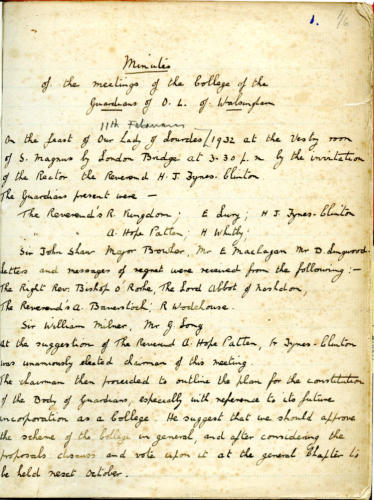 1.
Minutes
of the meetings of the College of the
Guardians of O. L. of Walsingham
11th February
On the feast of Our Lady of Lourdes/1932 at the Vestry room
of S. Magnus by London Bridge at 3.30 p.m by the invitation
of the Rector the Reverend H. J. Fynes-Clinton
The Guardians present were —
The Reverends R Kingdom; E Lury; H J Fynes-Clinton
" " A. Hope Patten; H Whitby;
Sir John Shaw Major Bowker, Mr E Maclagan Mr D. Lingwood.
Letters and messages of regret were received from the following:—
The Right Rev. Bishop O'Rorke, The Lord Abbot of Nashdom,
The Reverends A. Baverstock; R Wodehouse.
Sir William Milner, Mr J Long.
At the suggestion of The Reverend A. Hope Patten, Fr Fynes-Clinton
was unaniously elected chairman of this meeting.
The chairman then proceeded to outline the plan for the constitution
of the Body of Guardians, especially with reference to its future
incorporation as a College. He suggest that we should approve
the scheme of the College in general, and after considering the
proposals discuss and vote upon it at the general Chapter to
be held next October.